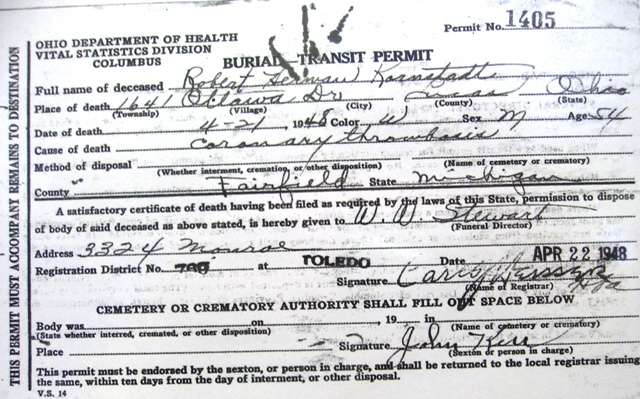 THIS PERMIT MUST ACCOMPANY REMAINS TO DESTINATION
Permit No. 1405
OHIO DEPARTMENT OF HEALTH
VITAL STATISTICS DIVISION
COLUMBUS
BURIAL TRANSIT PERMIT
Full name of deceased Robert Herman
Place of death 1641 Ottawa Dr Lucas Ohio
(Township) (Village) (City) (County) (State)
Date of death 4-21 1948 Color W Sex M Age 54
Cause of death coronary thrombosis
Method of disposal
(Whether interment, cremation, or other disposition) (Name of cemetery or crematory)
County Fairfield State Michigan
A satisfactory certificate of death having been filed as required by the laws of this State, permission to dispose
of body of said deceased as above stated, is hereby given to W. W. Stewart
(Funeral Director)
Address 3324 Monroe Date APR 22 1948
Registration District No. 789 at TOLEDO
Signature
(Name of Registrar)
CEMETERY OR CREMATORY AUTHORITY SHALL FILL OUT SPACE BELOW
Body was on , 19 in
(State whether interred, cremated, or other disposition) (Name of cemetery or crematory)
Place Signature John Kerr
(Sexton or person in charge)
This permit must be endorsed by the sexton, or person in charge, and shall be returned to the local registrar issuing
the same, within ten days from the day of interment, or other disposal.
V.S. 14